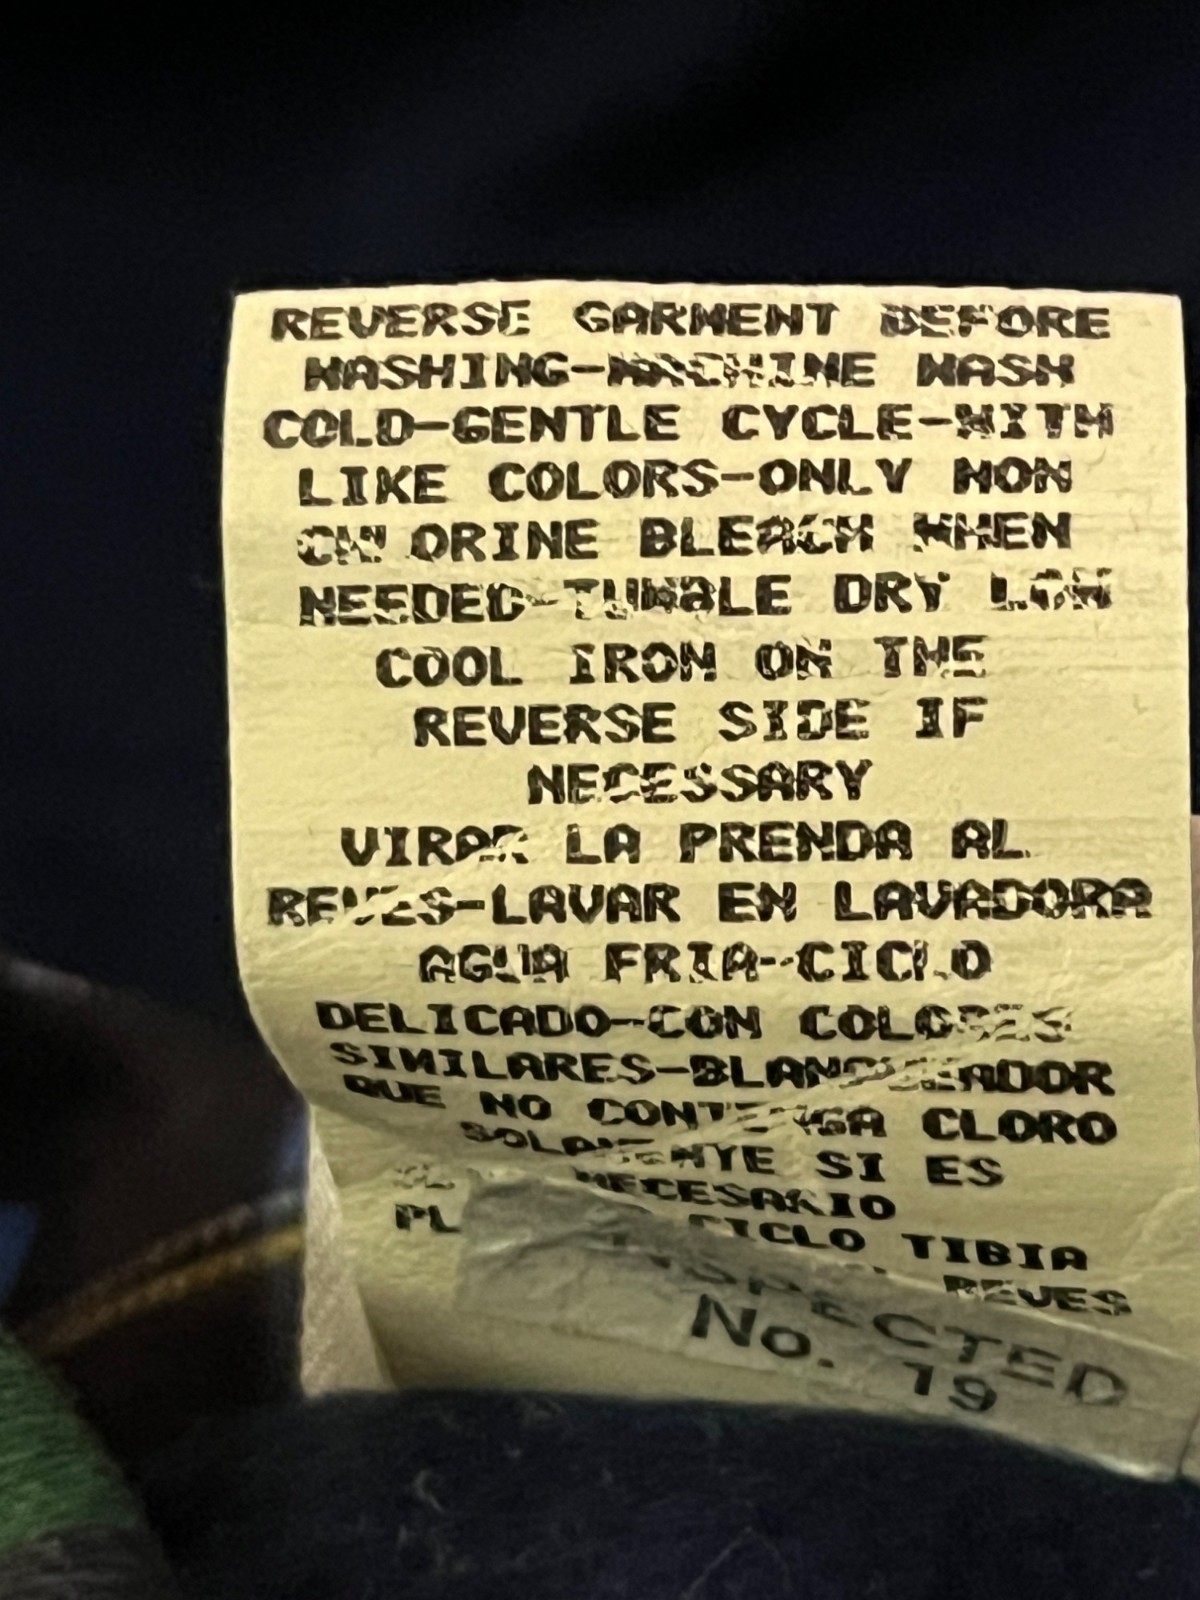 REVERSE GARMENT BEFORE
WASHING-MACHINE WASH
COLD-GENTLE CYCLE-WITH
LIKE COLORS-ONLY NON
CHLORINE BLEACH WHEN
NEEDED-TUMBLE DRY LOW
COOL IRON ON THE
REVERSE SIDE IF
NECESSARY
VIRAR LA PRENDA AL
REVES-LAVAR EN LAVADORA
AGUA FRIA-CICLO
DELICADO-CON COLORES
SIMILARES-BLANQUEADOR
QUE NO CONTENGA CLORO
SOLAMENTE SI ES
NECESARIO
CICLO TIBIA
REVES
INSPECTED
No. 19